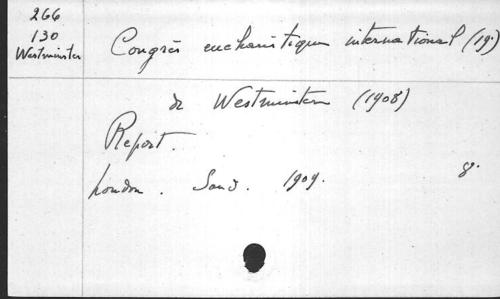 266
130
Westminster
Congrès eucharistique international (19°)
de Westminster (1908)
Report.
London. Sands. 1909. 8°